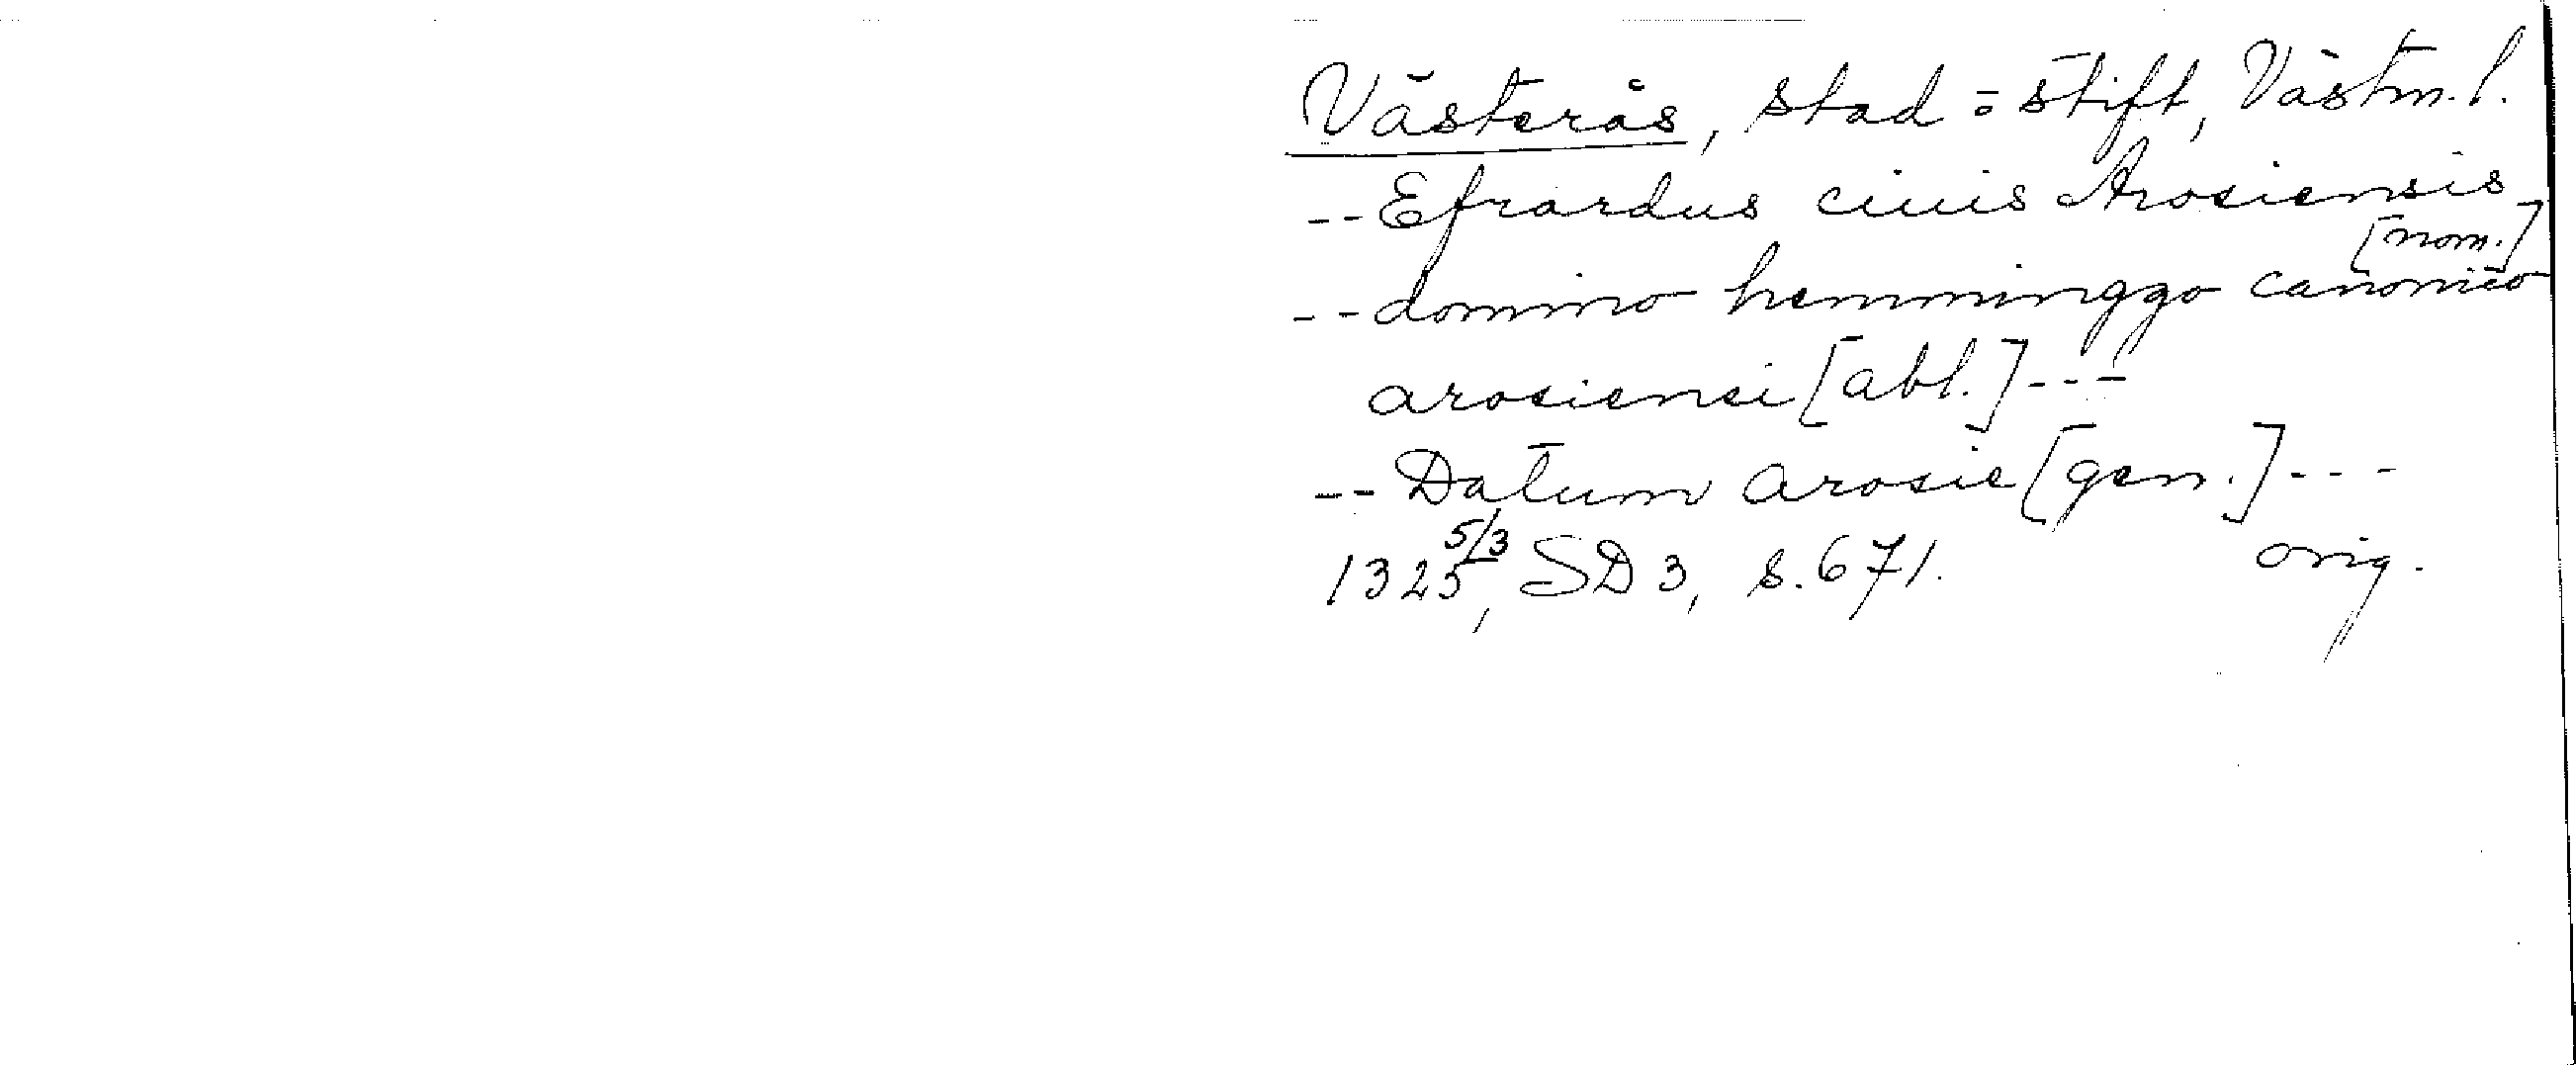 Västerås, stad = stift, Västm. l.
-- Efrardus ciuis Arosiensis
[nom.]
-- domino hemminggo canonico
arosiensi [abl.] ---
-- Datum arosie [gen.] ---
1325 5/3, SD 3, s. 671. orig.